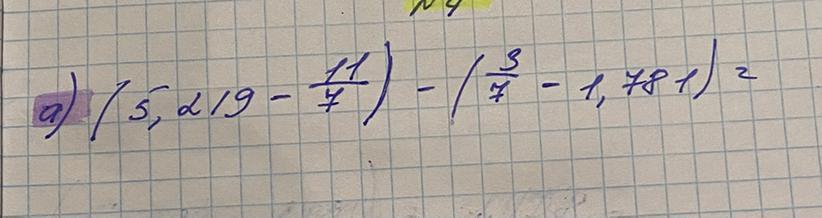 №4
а) (5,219 - 11/7) - (3/7 - 1,781) =